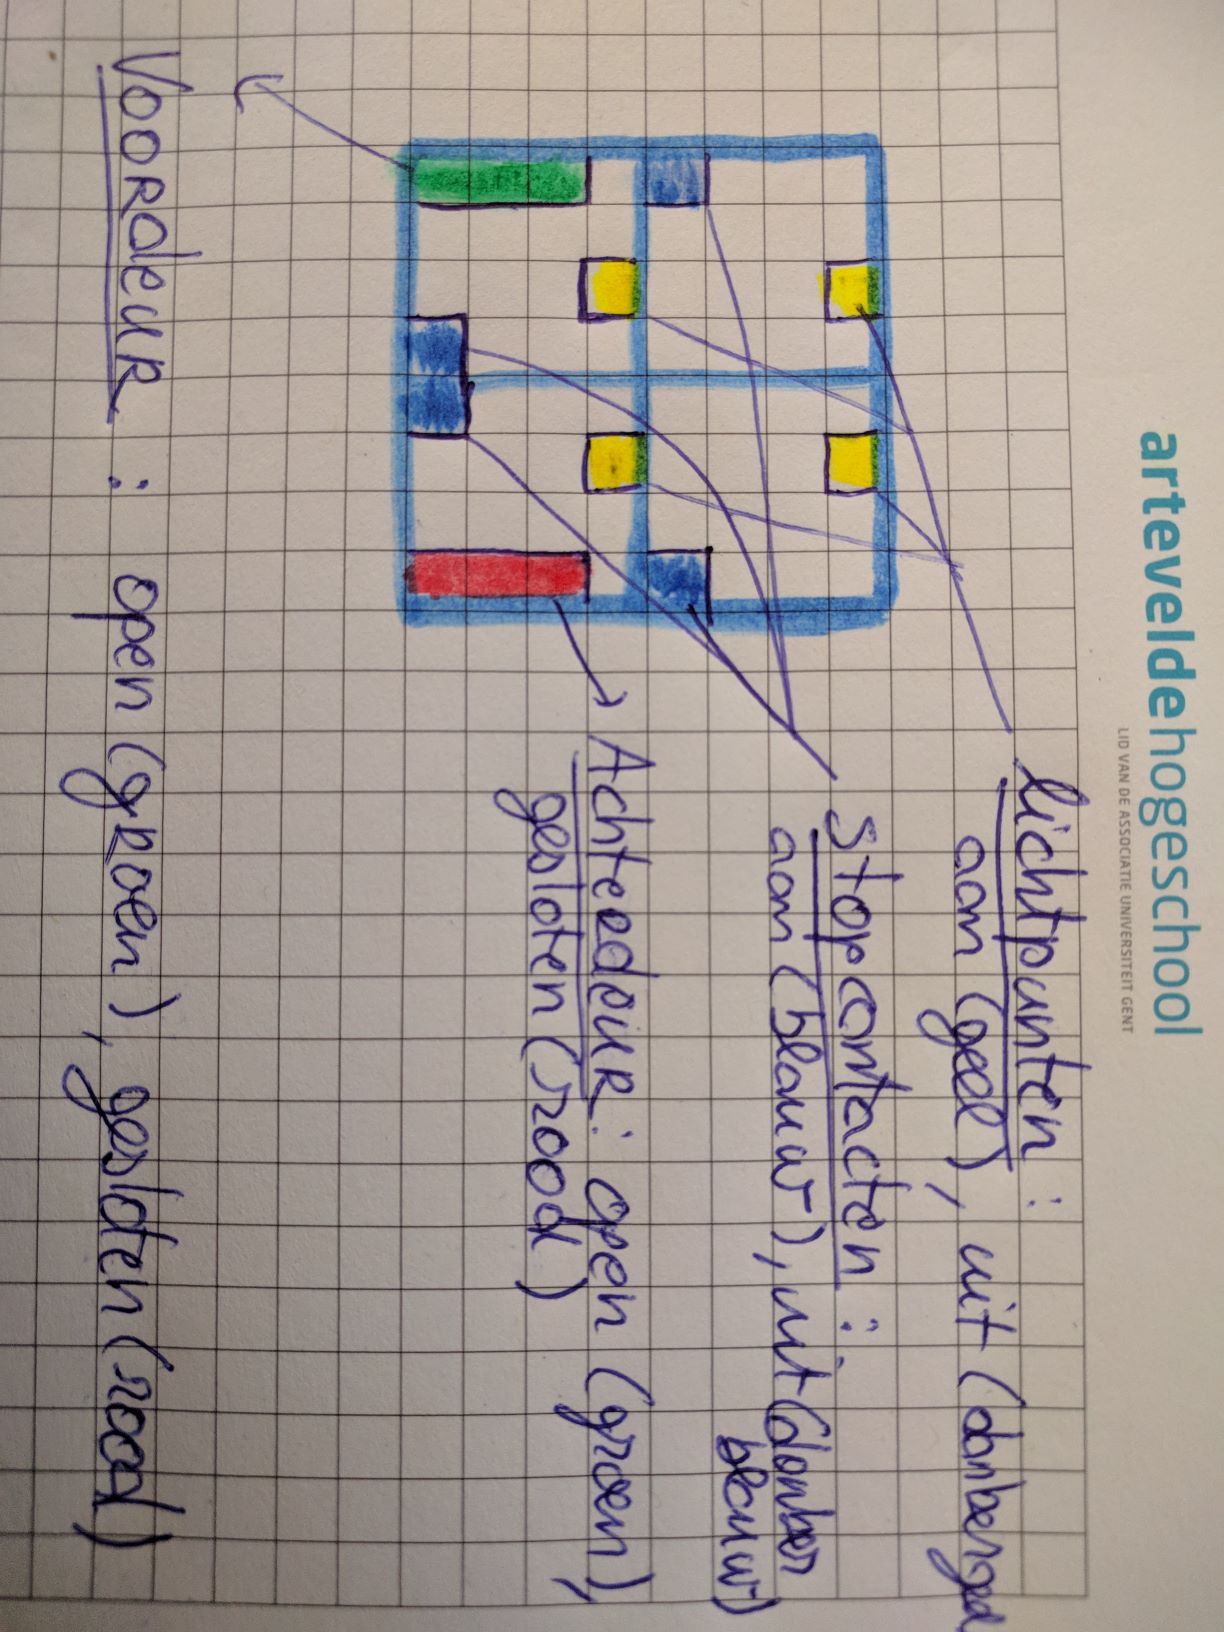 arteveldehogeschool
LID VAN DE ASSOCIATIE UNIVERSITEIT GENT
lichtpunten :
aan (geel), uit (donkergeel
stopcontacten :
aan (blauw), uit (donker
blauw)
AchterdeuR : open (groen),
gesloten (rood)
VooRdeuR : open (groen), gesloten (rood)